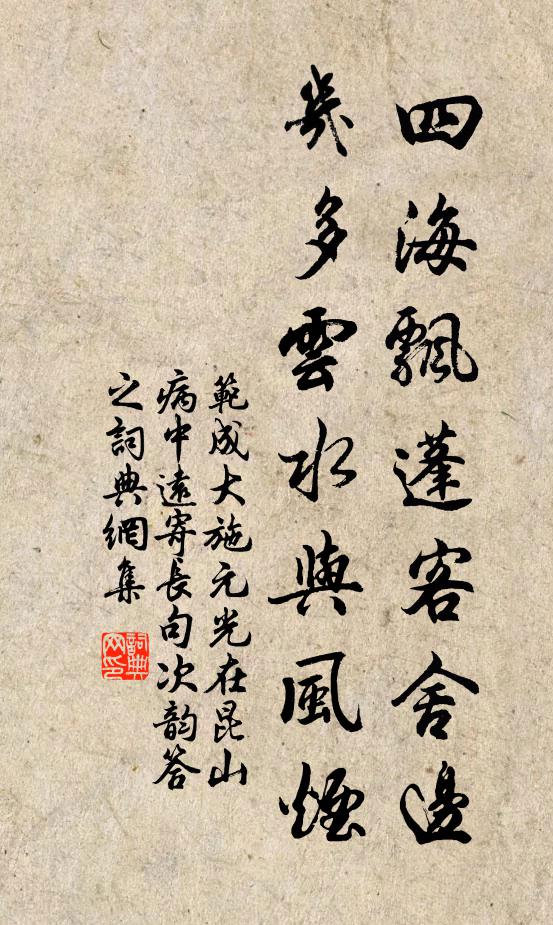 四海飄蓬客舍邊
幾多雲水與風煙
範成大施元光在昆山
病中遠寄長句次韵答
之詞典網集
詞典网印